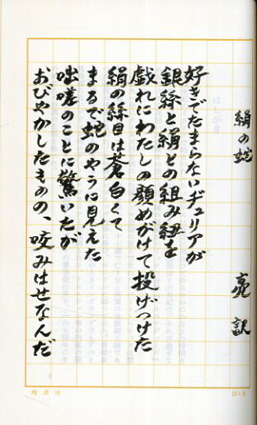 絹の蛇
亮訳
好きでたまらないヂュリアが
銀絲と絹との組み紐を
戯れにわたしの顔めがけて投げつけた
絹の絲目は蒼白くて
まるで蛇のやうに見えた
咄嗟のことに驚いたが
おびやかしたものの、咬みはせなんだ